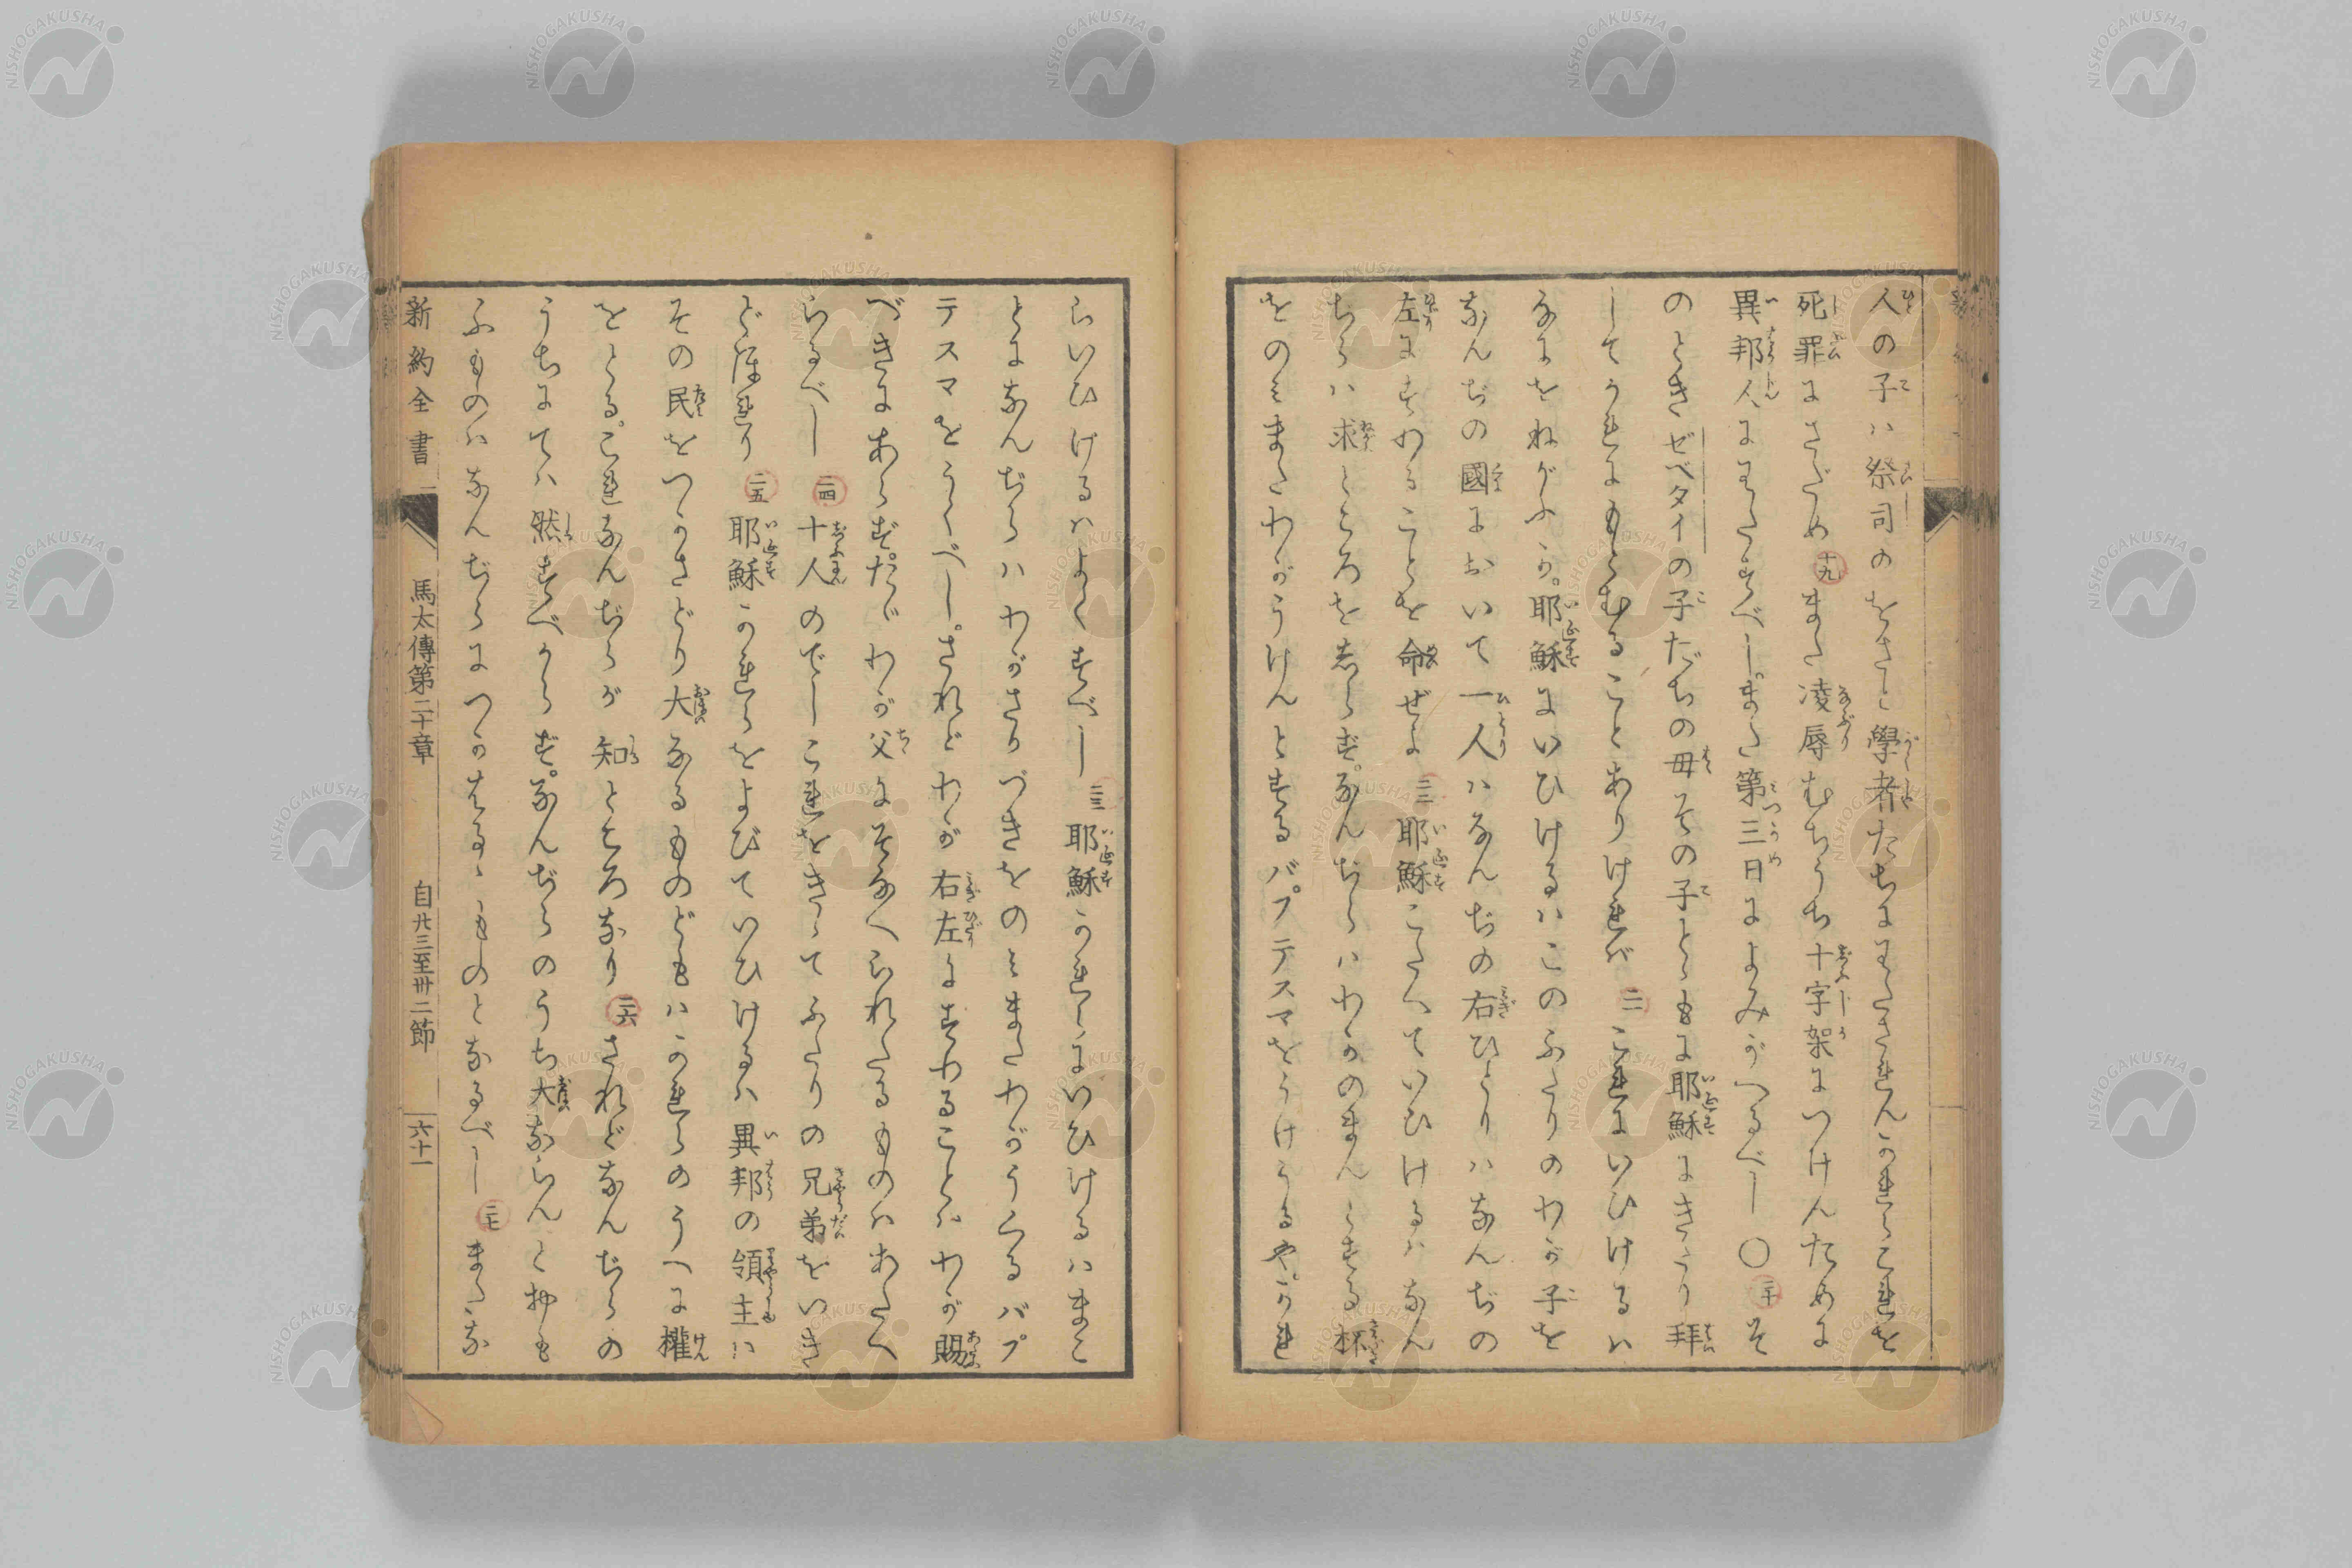 人の子ハ祭司のをさと學者たちにわたされんかれらこれを
死罪にさだめ十九また凌辱むちうち十字架につけんために
異邦人にわたすべし。また第三日によみがへるべし〇二十そ
のときゼベダイの子だちの母その子とゝもに耶穌にきたり拜
してかれにもとむることありけれバ二一これにいひけるハ
なにをねがふか。耶穌にいひけるハこのふたりのわが子を
なんぢの國において一人ハなんぢの右ひとりハなんぢの
左にすわることを命ぜよ二二耶穌こたへていひけるハなん
ぢらハ求ところを志らず。なんぢらハわがのまんとする杯
をのミまたわがうけんとするバプテスマをうけうるや。かれ
らいひけるハよくすべし二三耶穌かれらにいひけるハまこ
とになんぢらハわがさかづきをのミまたわがうくるバプ
テスマをうくべし。されどわが右左にすわることハわが賜
べきにあらず。たゞわが父にそなへられたるものハあたへ
らるべし二四十人のでしこれをきゝてふたりの兄弟をいき
どほれり二五耶穌かれらをよびていひけるハ異邦の領主ハ
その民をつかさどり大なるものどもハかれらのうへに權
をとる。これなんぢらが知ところなり二六されどなんぢらの
うちにてハ然すべからず。なんぢらのうち大ならんと抑も
ふものハなんぢらにつかはるゝものとなるべし二七またな
新約全書
馬太傳第二十章
自廿三至卅二節
六十一
NISHOGAKUSHA